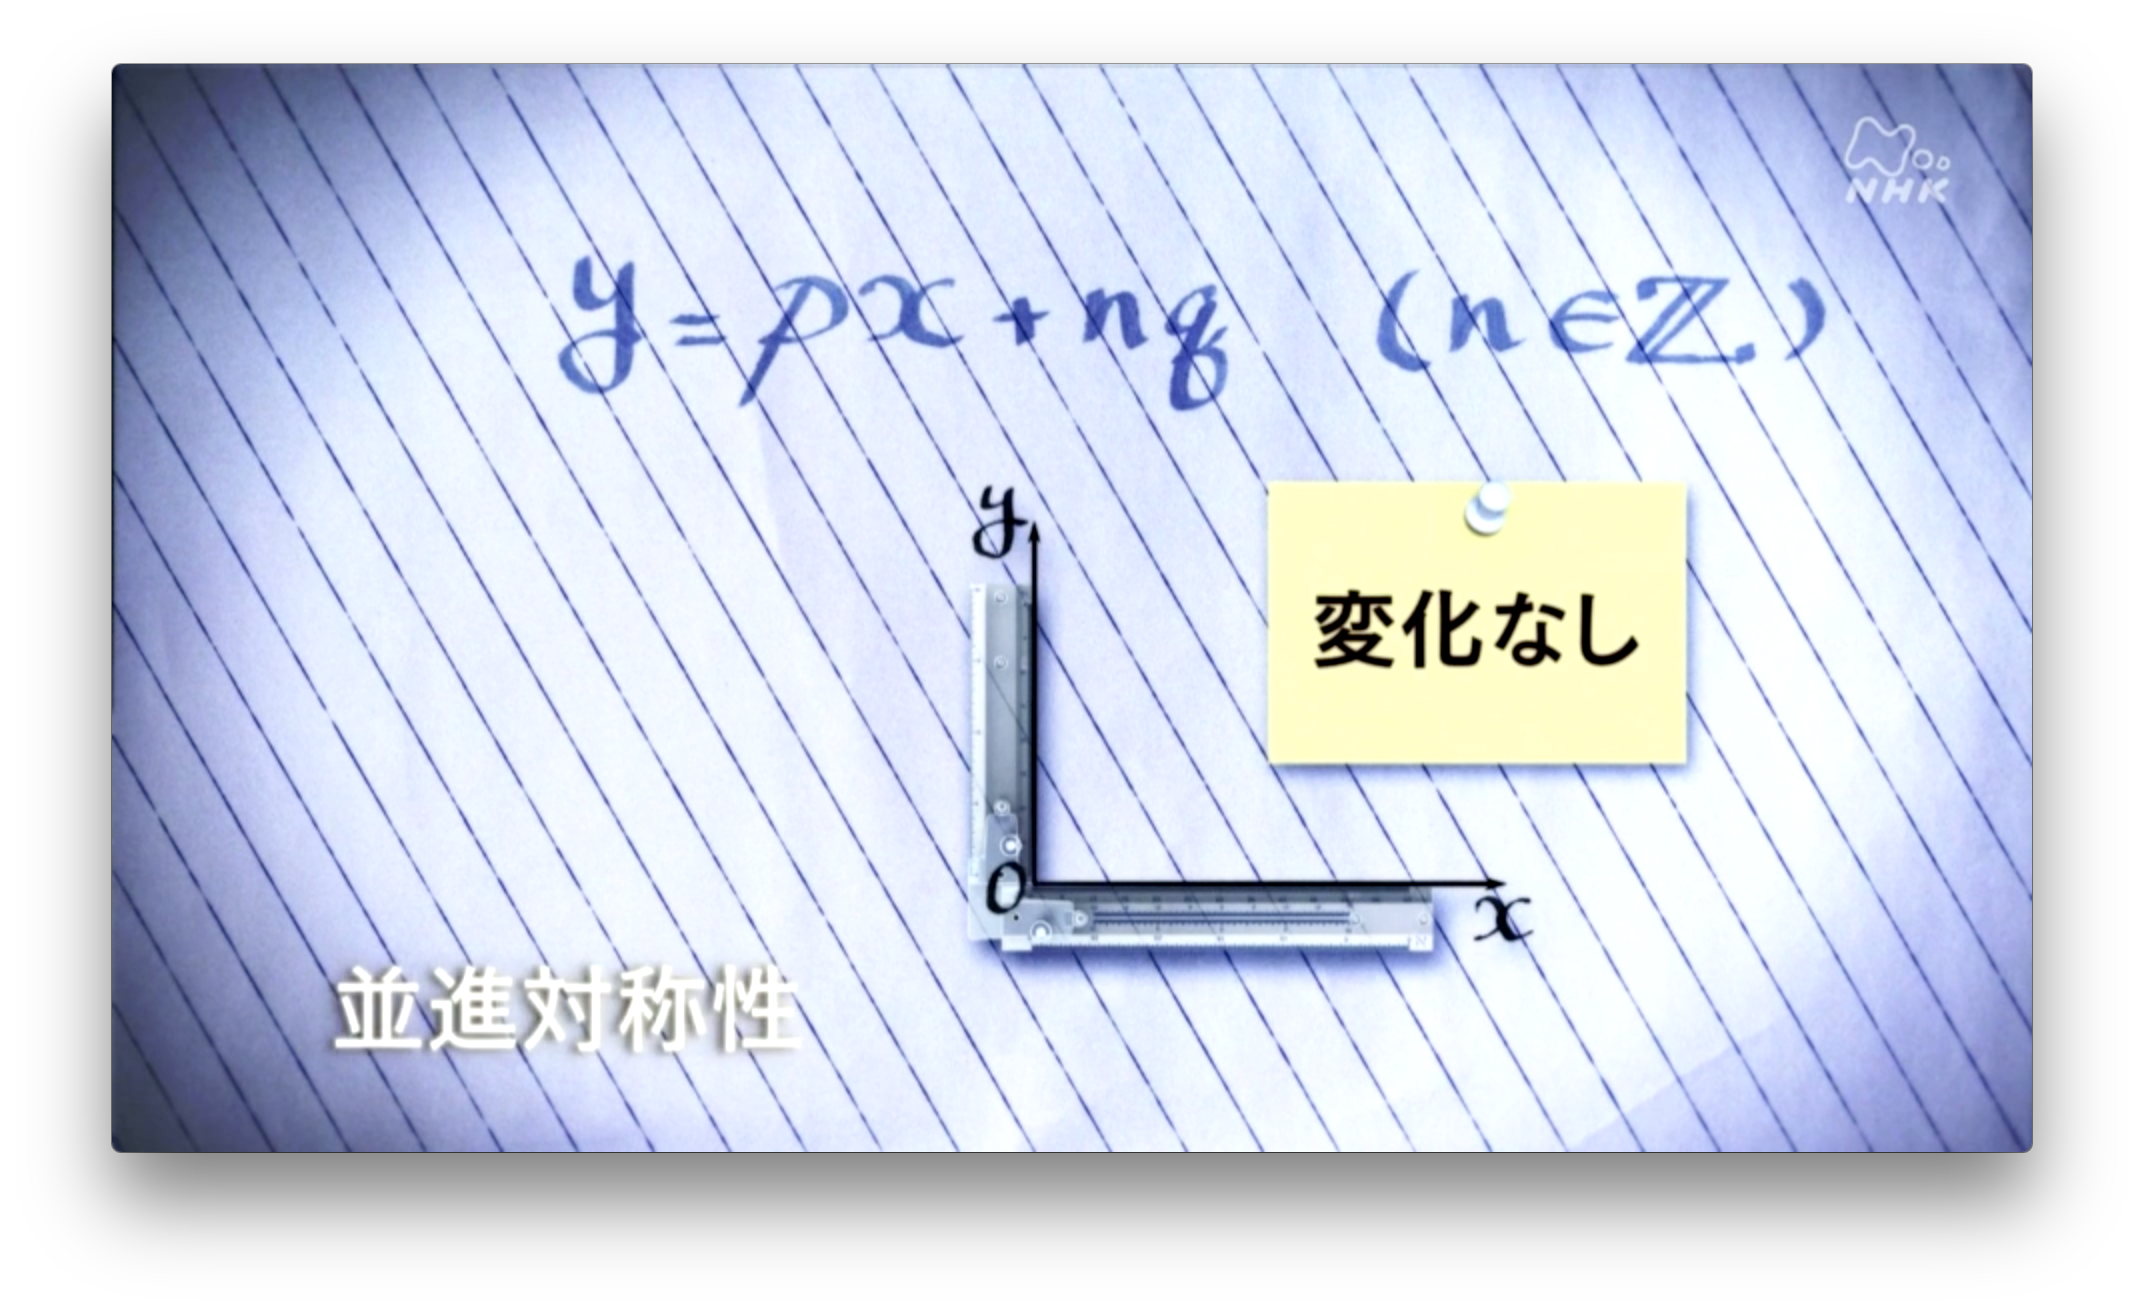 NHK
y = px + nq (n ∈ ℤ.)
y
変化なし
O
x
並進対称性